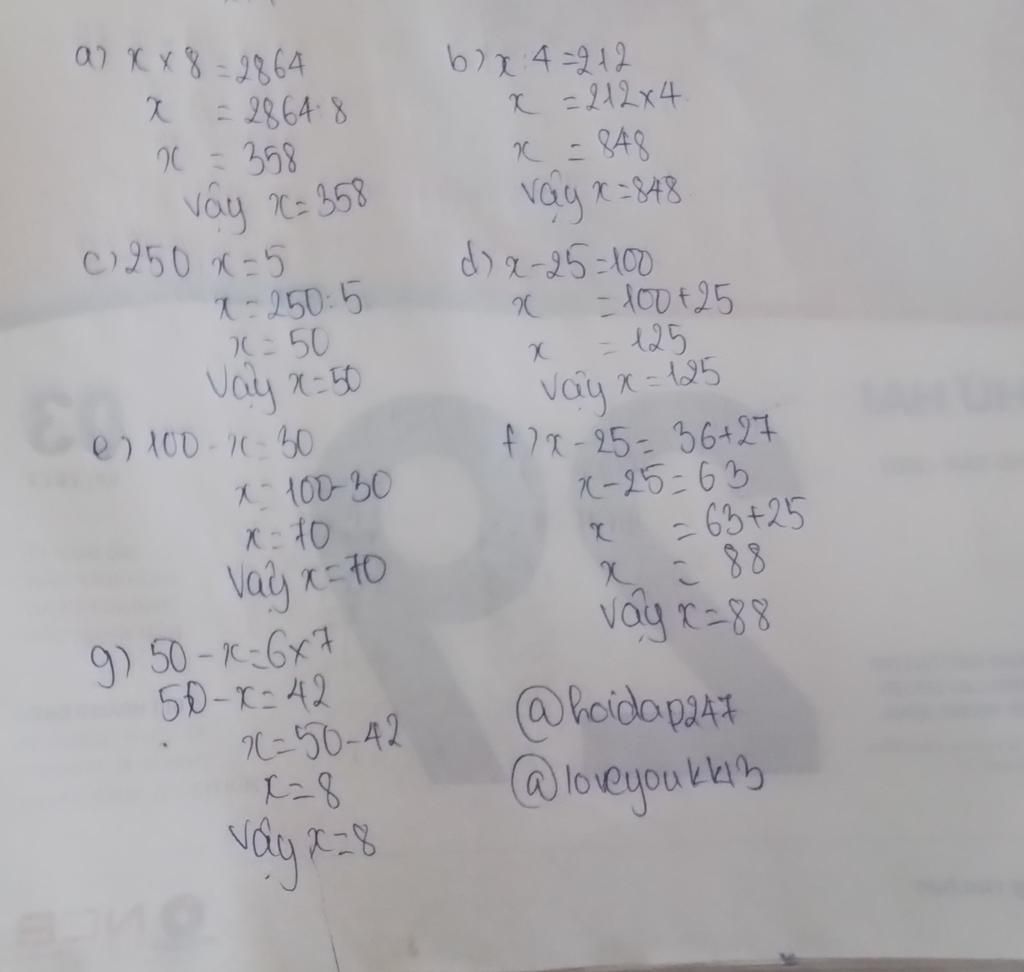 a) x × 8 = 2864
x = 2864 : 8
x = 358
vậy x = 358
b) x : 4 = 212
x = 212 × 4
x = 848
vậy x = 848
c) 250 x = 5
x = 250 : 5
x = 50
vậy x = 50
d) x - 25 = 100
x = 100 + 25
x = 125
vậy x = 125
e) 100 - x = 30
x = 100 - 30
x = 70
vậy x = 70
f) x - 25 = 36 + 27
x - 25 = 63
x = 63 + 25
x = 88
vậy x = 88
g) 50 - x = 6 × 7
50 - x = 42
x = 50 - 42
x = 8
vậy x = 8
@hoidap247
@loveyoukk13
29
03
NCB